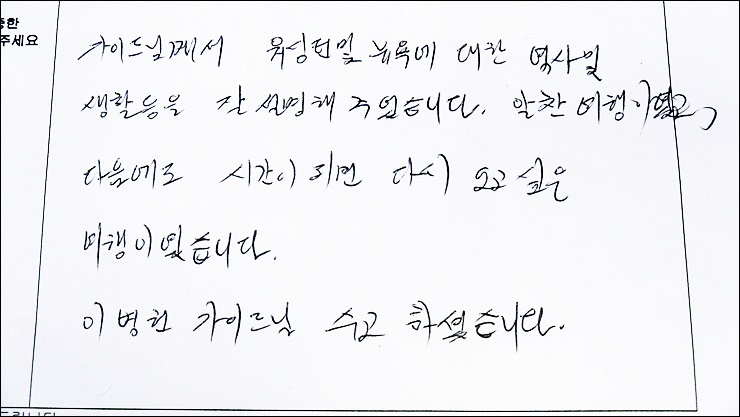 중한
주세요
가이드님께서 워싱턴및 뉴욕에 대한 역사및
생활등을 잘 설명해 주었습니다. 알찬 여행이였고,
다음에도 시간이 되면 다시 오고 싶은
여행이였습니다.
이병헌 가이드님 수고 하셨습니다.
드립니다